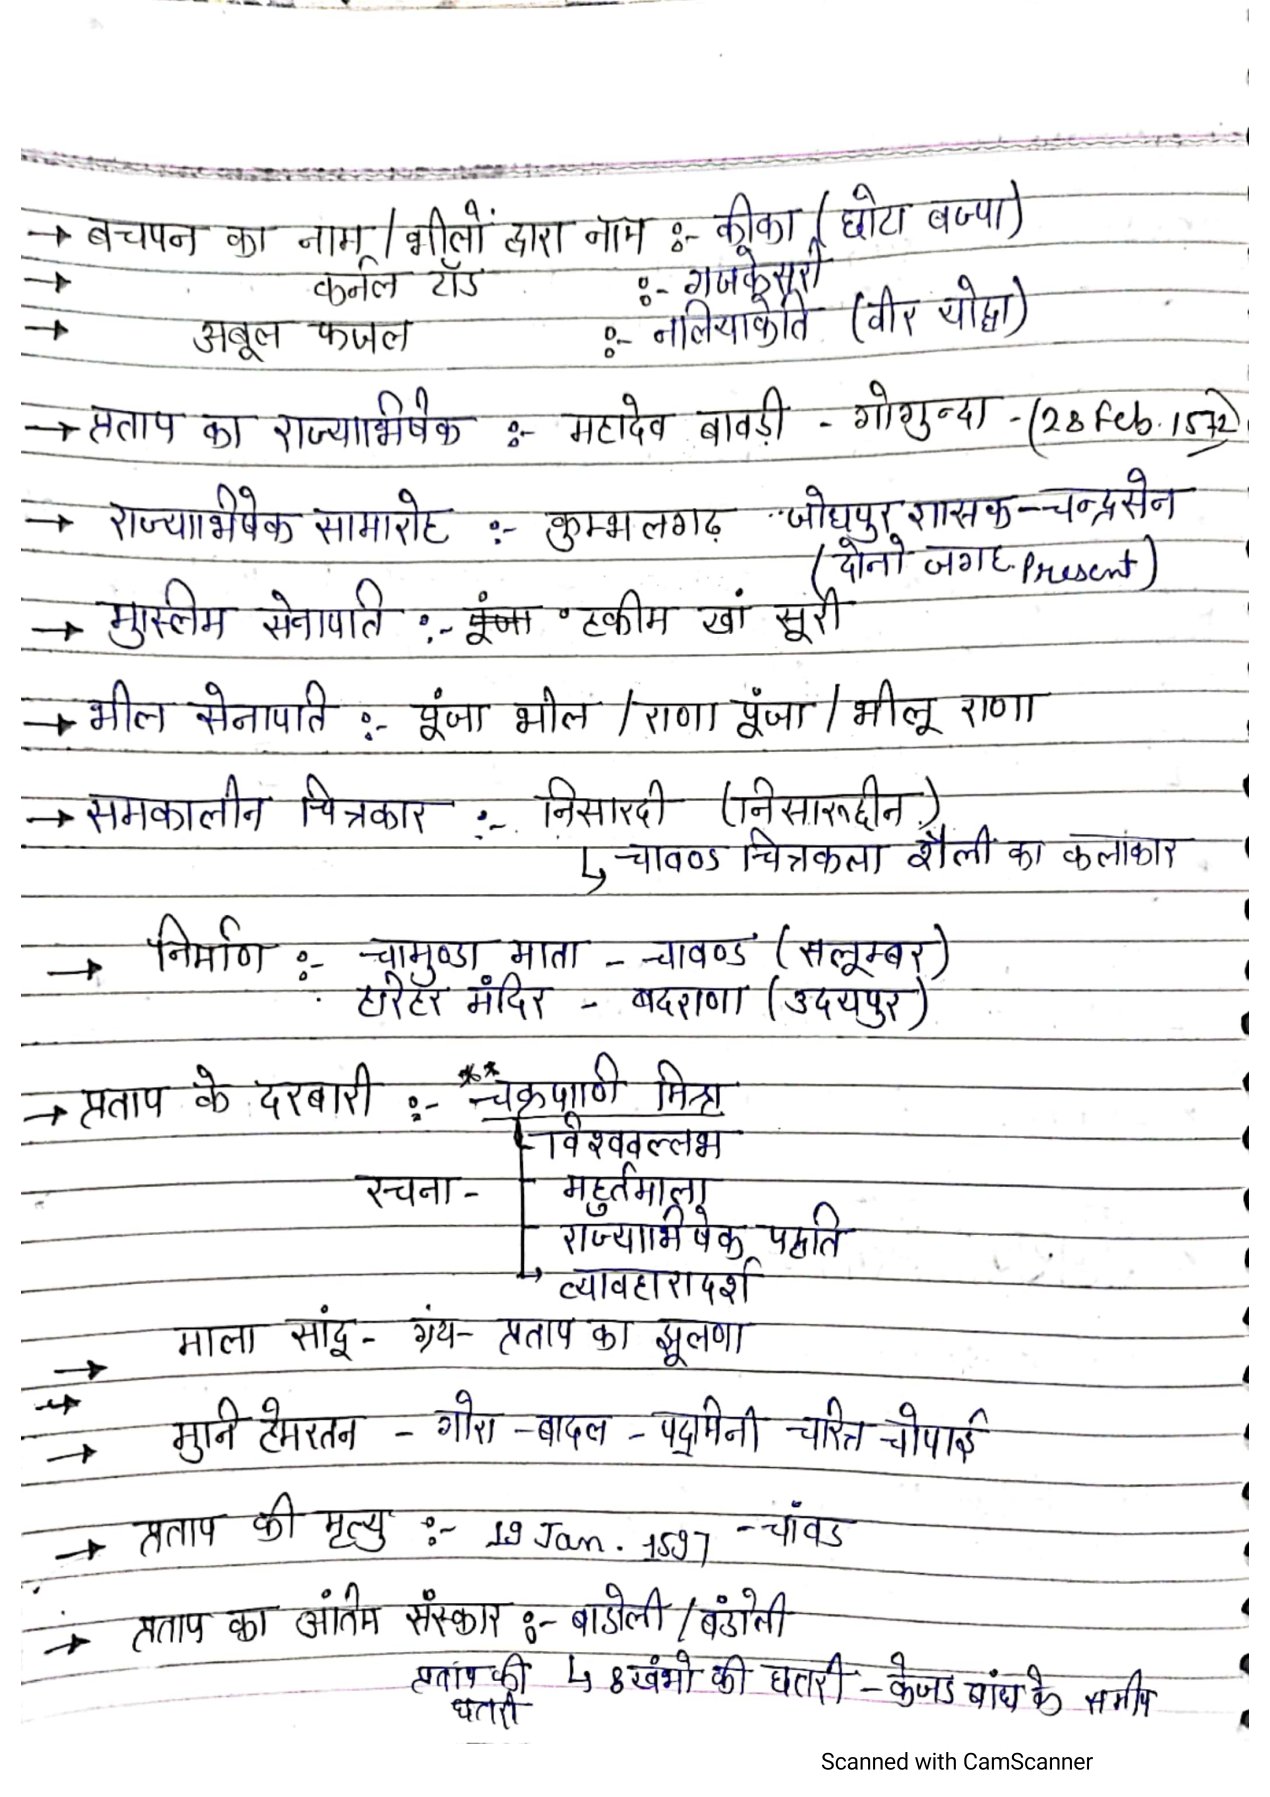 → बचपन का नाम / भीलों द्वारा नाम :- कीका ( छोटा बज्पा)
→ कर्नल टॉड :- गजकेसूरी
→ अबूल फजल :- नलियाकेति (वीर योद्धा)
→ प्रताप का राज्याभिषेक :- महादेव बावड़ी - गोगुन्दा - (28 Feb. 1572)
→ राज्याभिषेक सामारोह :- कुम्भलगढ़ जोधपुर शासक - चन्द्रसेन
(दोनो जगह Present)
→ मुस्लिम सेनापति :- पूंजा हकीम खां सूरी
→ भील सेनापति :- पूंजा भील / राणा पूंजा / भीलू राणा
→ समकालीन चित्रकार :- निसारदी (निसारूद्दीन)
↳ चावण्ड चित्रकला शैली का कलाकार
→ निर्माण :- चामुण्डा माता - चावण्ड (सलूम्बर)
हरिहर मंदिर - बदराणा (उदयपुर)
→ प्रताप के दरबारी :- ** चक्रपाणी मिश्रा
विश्ववल्लभ
रचना - महुर्तमाला
राज्याभिषेक पद्धति
व्यावहारादर्श
→ माला सांदू - ग्रंथ - प्रताप का झूलणा
→
→ मुनि हेमरतन - गोरा - बादल - पद्मिनी चरित्र चोपाई
→ प्रताप की मृत्यु :- 19 Jan. 1597 - चांवड
→ प्रताप का अंतिम संस्कार :- बाडोली / बंडोली
प्रताप की ↳ 8 खंभो की छतरी - केजड बांध के समीप
छतरी
Scanned with CamScanner